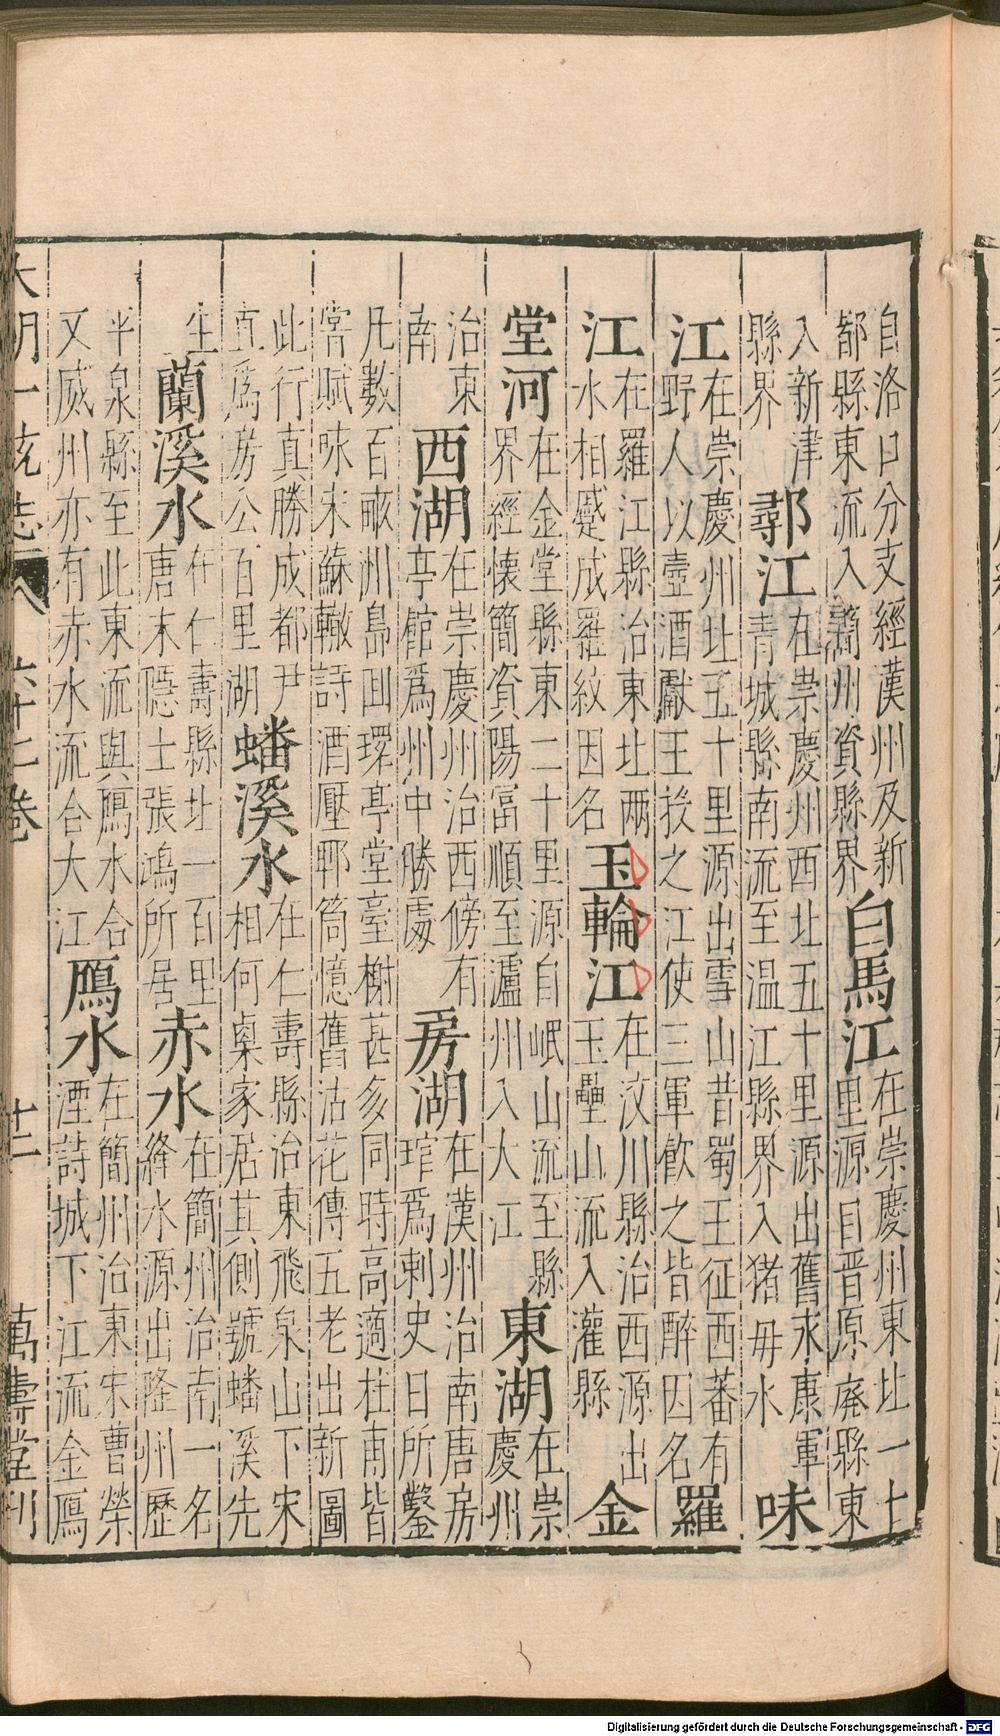 自洛口分支經漢州及新
都縣東流入簡州資縣界
白馬江
在崇慶州東北一十
里源自晋原廃縣東
入新津
縣界
鄩江
在崇慶州西北五十里源出舊永康軍
青城縣南流至温江縣界入猪毋水
味
江
在崇慶州北五十里源出雪山昔蜀王征西蕃有
野人以壼酒獻王投之江使三軍飲之皆醉因名
羅
江
在羅江縣治東北两
水相蹙成羅紋因名
玉輪江
在汶川縣治西源出
玉壘山流入灌縣
金
堂河
在金堂縣東二十里源自岷山流至縣
界經懐簡資陽冨順至瀘州入大江
東湖
在崇
慶州
治東
南
西湖
在崇慶州治西傍有
亭館爲州中勝處
房湖
在漢州治南唐房
琯爲刺史日所鑿
凡數百畝洲島回環亭堂臺榭甚多同時高適杜甫皆
嘗賦咏宋蘇轍詩酒壓郫筒憶舊沽花傳五老出新圖
此行真勝成都尹
直爲房公百里湖
蟠溪水
在仁壽縣治東飛泉山下宋
相何㮚家居其側號蟠溪先
生
蘭溪水
在仁壽縣北一百里
唐末隱士張鴻所居
赤水
在簡州治南一名
絳水源出隆州歷
平泉縣至此東流與鴈水合
又威州亦有赤水流合大江
鴈水
在簡州治東宋曹榮
湮詩城下江流金鴈
大明一統志
六十七卷
十二
萬壽堂刊
Digitalisierung gefördert durch die Deutsche Forschungsgemeinschaft - DFG